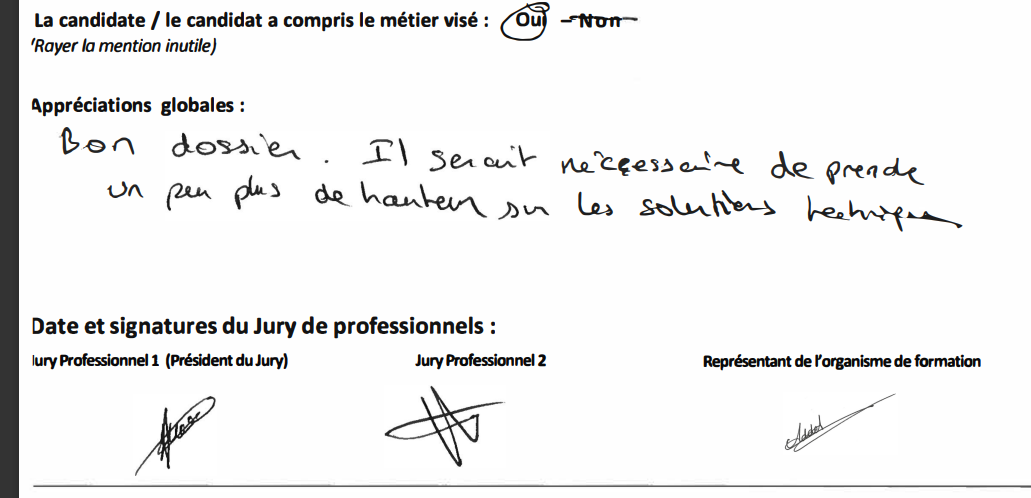 La candidate / le candidat a compris le métier visé : Oui Non
(Rayer la mention inutile)
Appréciations globales :
Bon dossier. Il serait nécessaire de prende
un peu plus de hauteur sur les solutions techniques
Date et signatures du Jury de professionnels :
Jury Professionnel 1 (Président du Jury) Jury Professionnel 2 Représentant de l'organisme de formation